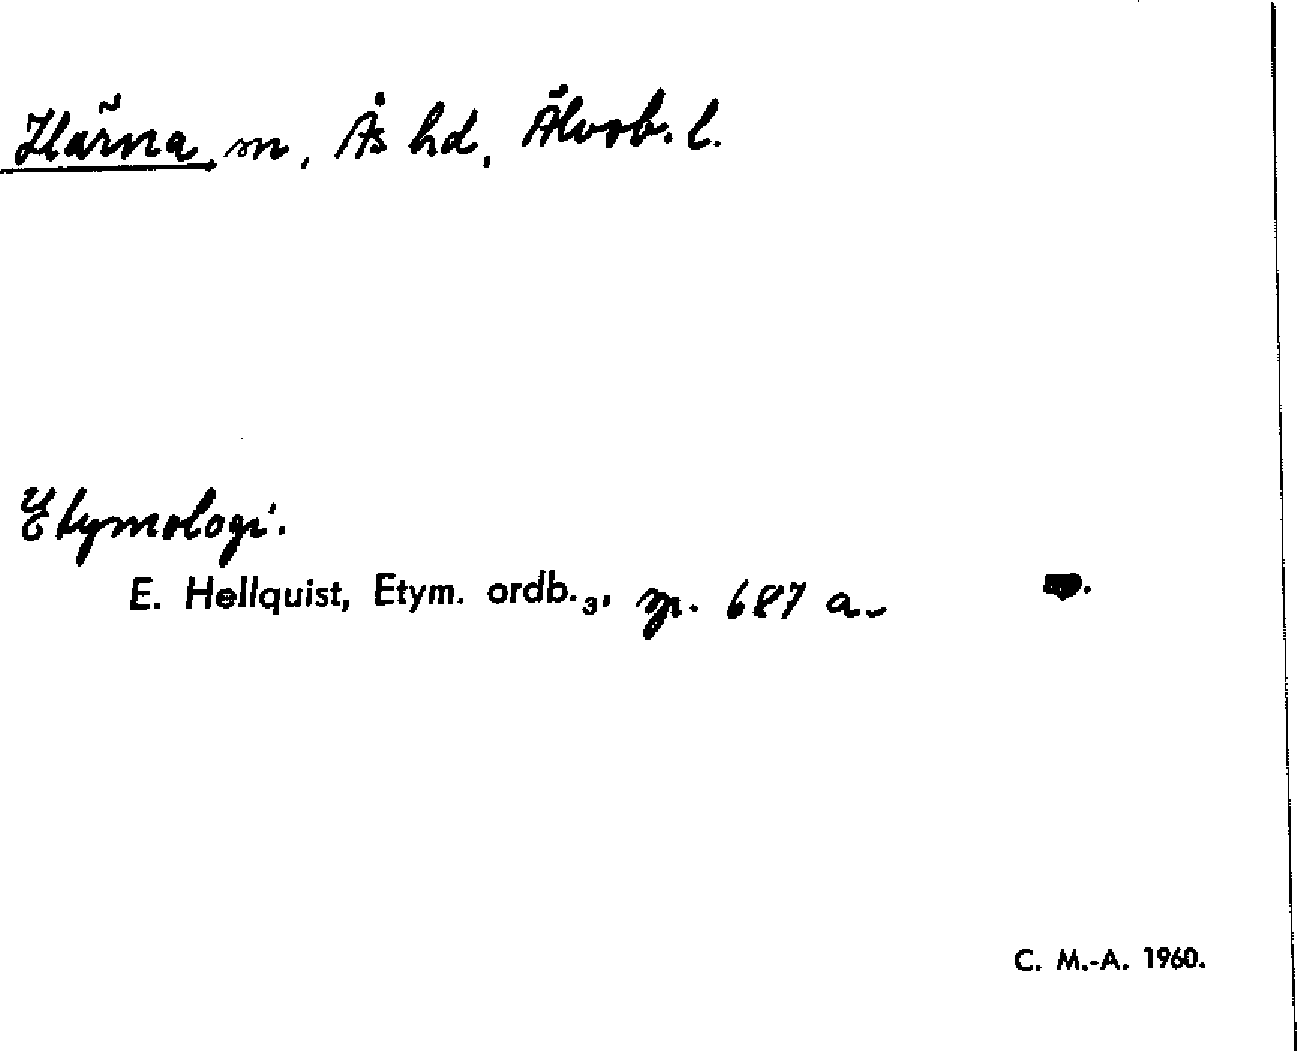 Härna m, Ås hd, Älvsb. l.
Etymologi.
E. Hellquist, Etym. ordb.₃, sp. 687 a.
C. M.-A. 1960.